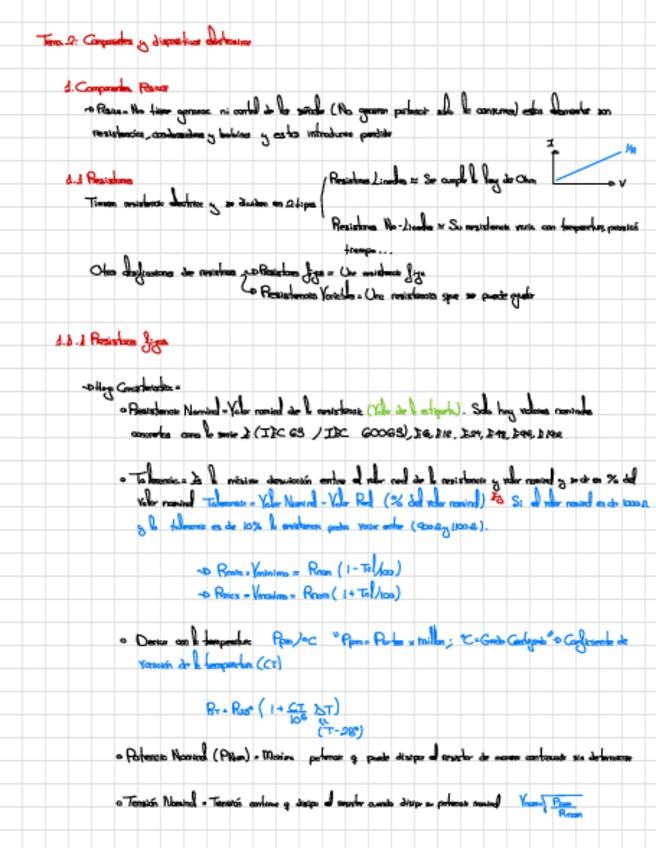 Tema 2: Componentes y dispositivos electronicos
1. Componentes Pasivos
Pasivos = No tienen ganancia ni control de la señal (No generan potencia solo la consumen) estos elementos son
resistencias, condensadores y bobinas y estos introducen perdida
1.1 Resistores
Resistores Lineales = Se cumple la ley de Ohm
I
1/R
V
Tienen resistencia electrica y se dividen en 2 tipos
Resistores No-Lineales = Su resistencia varia con temperatura, presión
tiempo...
Otras clasificaciones de resistores → Resistores fijos = Una resistencia fija
→ Resistencias Variables = Una resistencia que se puede ajustar
1.1.1 Resistores fijos
→ Hay Características =
• Resistencia Nominal = Valor nominal de la resistencia (Valor de la etiqueta). Solo hay valores nominales
concretos como la serie E (IEC 63 / IEC 60063), E6, E12, E24, E48, E96, E192
• Tolerancia = Es la máxima desviación entre el valor real de la resistencia y valor nominal y se da en % del
valor nominal Tolerancia = Valor Nominal - Valor Real (% del valor nominal) Ej Si el valor nominal es de 1000Ω
y la tolerancia es de 10% la resistencia podra variar entre (900Ω y 1100Ω).
→ Rmin = Vminimo = Rnom (1 - Tol/100)
→ Rmax = Vmaximo = Rnom (1 + Tol/100)
• Deriva con la temperatura Ppm/°C "Ppm = Partes x millon; °C = Grado Centigrado" → Coeficiente de
Variación de la temperatura (CT)
RT = R25° (1 + CT/10⁶ ΔT)
(T-25°)
• Potencia Nominal (PNom) = Maxima potencia q puede disipar el resistor de manera continuada sin deteriorarse
• Tensión Nominal = Tensión continua q disipa el resistor cuando disipa su potencia nominal Vnom = √Pnom/Rnom